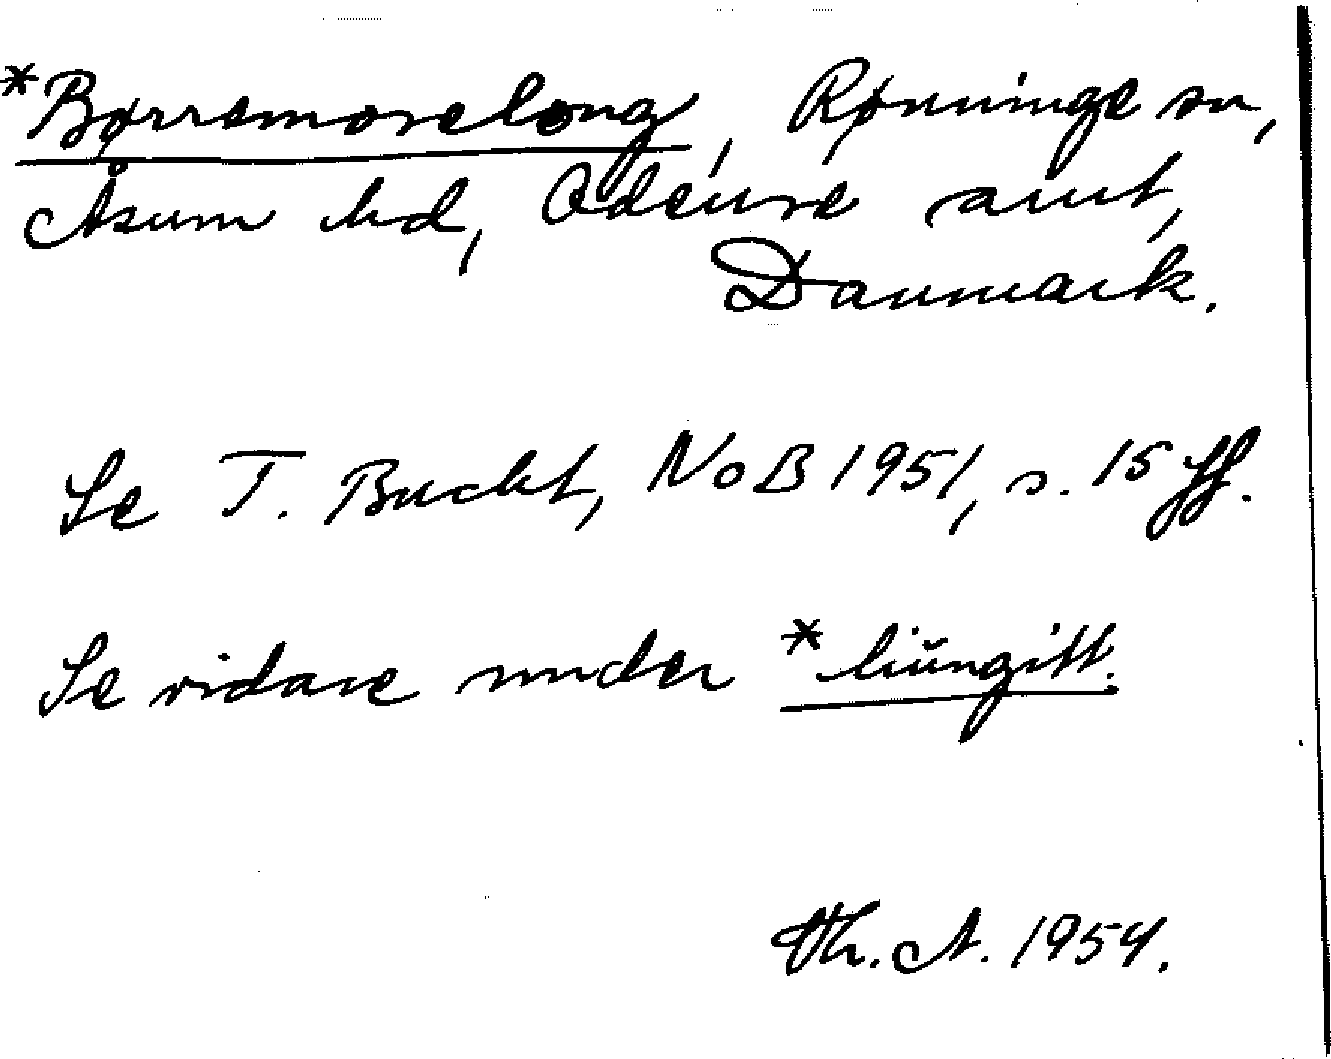 *Børremoselong, Rønninge sn,
Åsum hd, Odense amt,
Danmark.
Se T. Bucht, NoB 1951, s. 15 ff.
Se vidare under *liŭngitt.
Th. A. 1954.